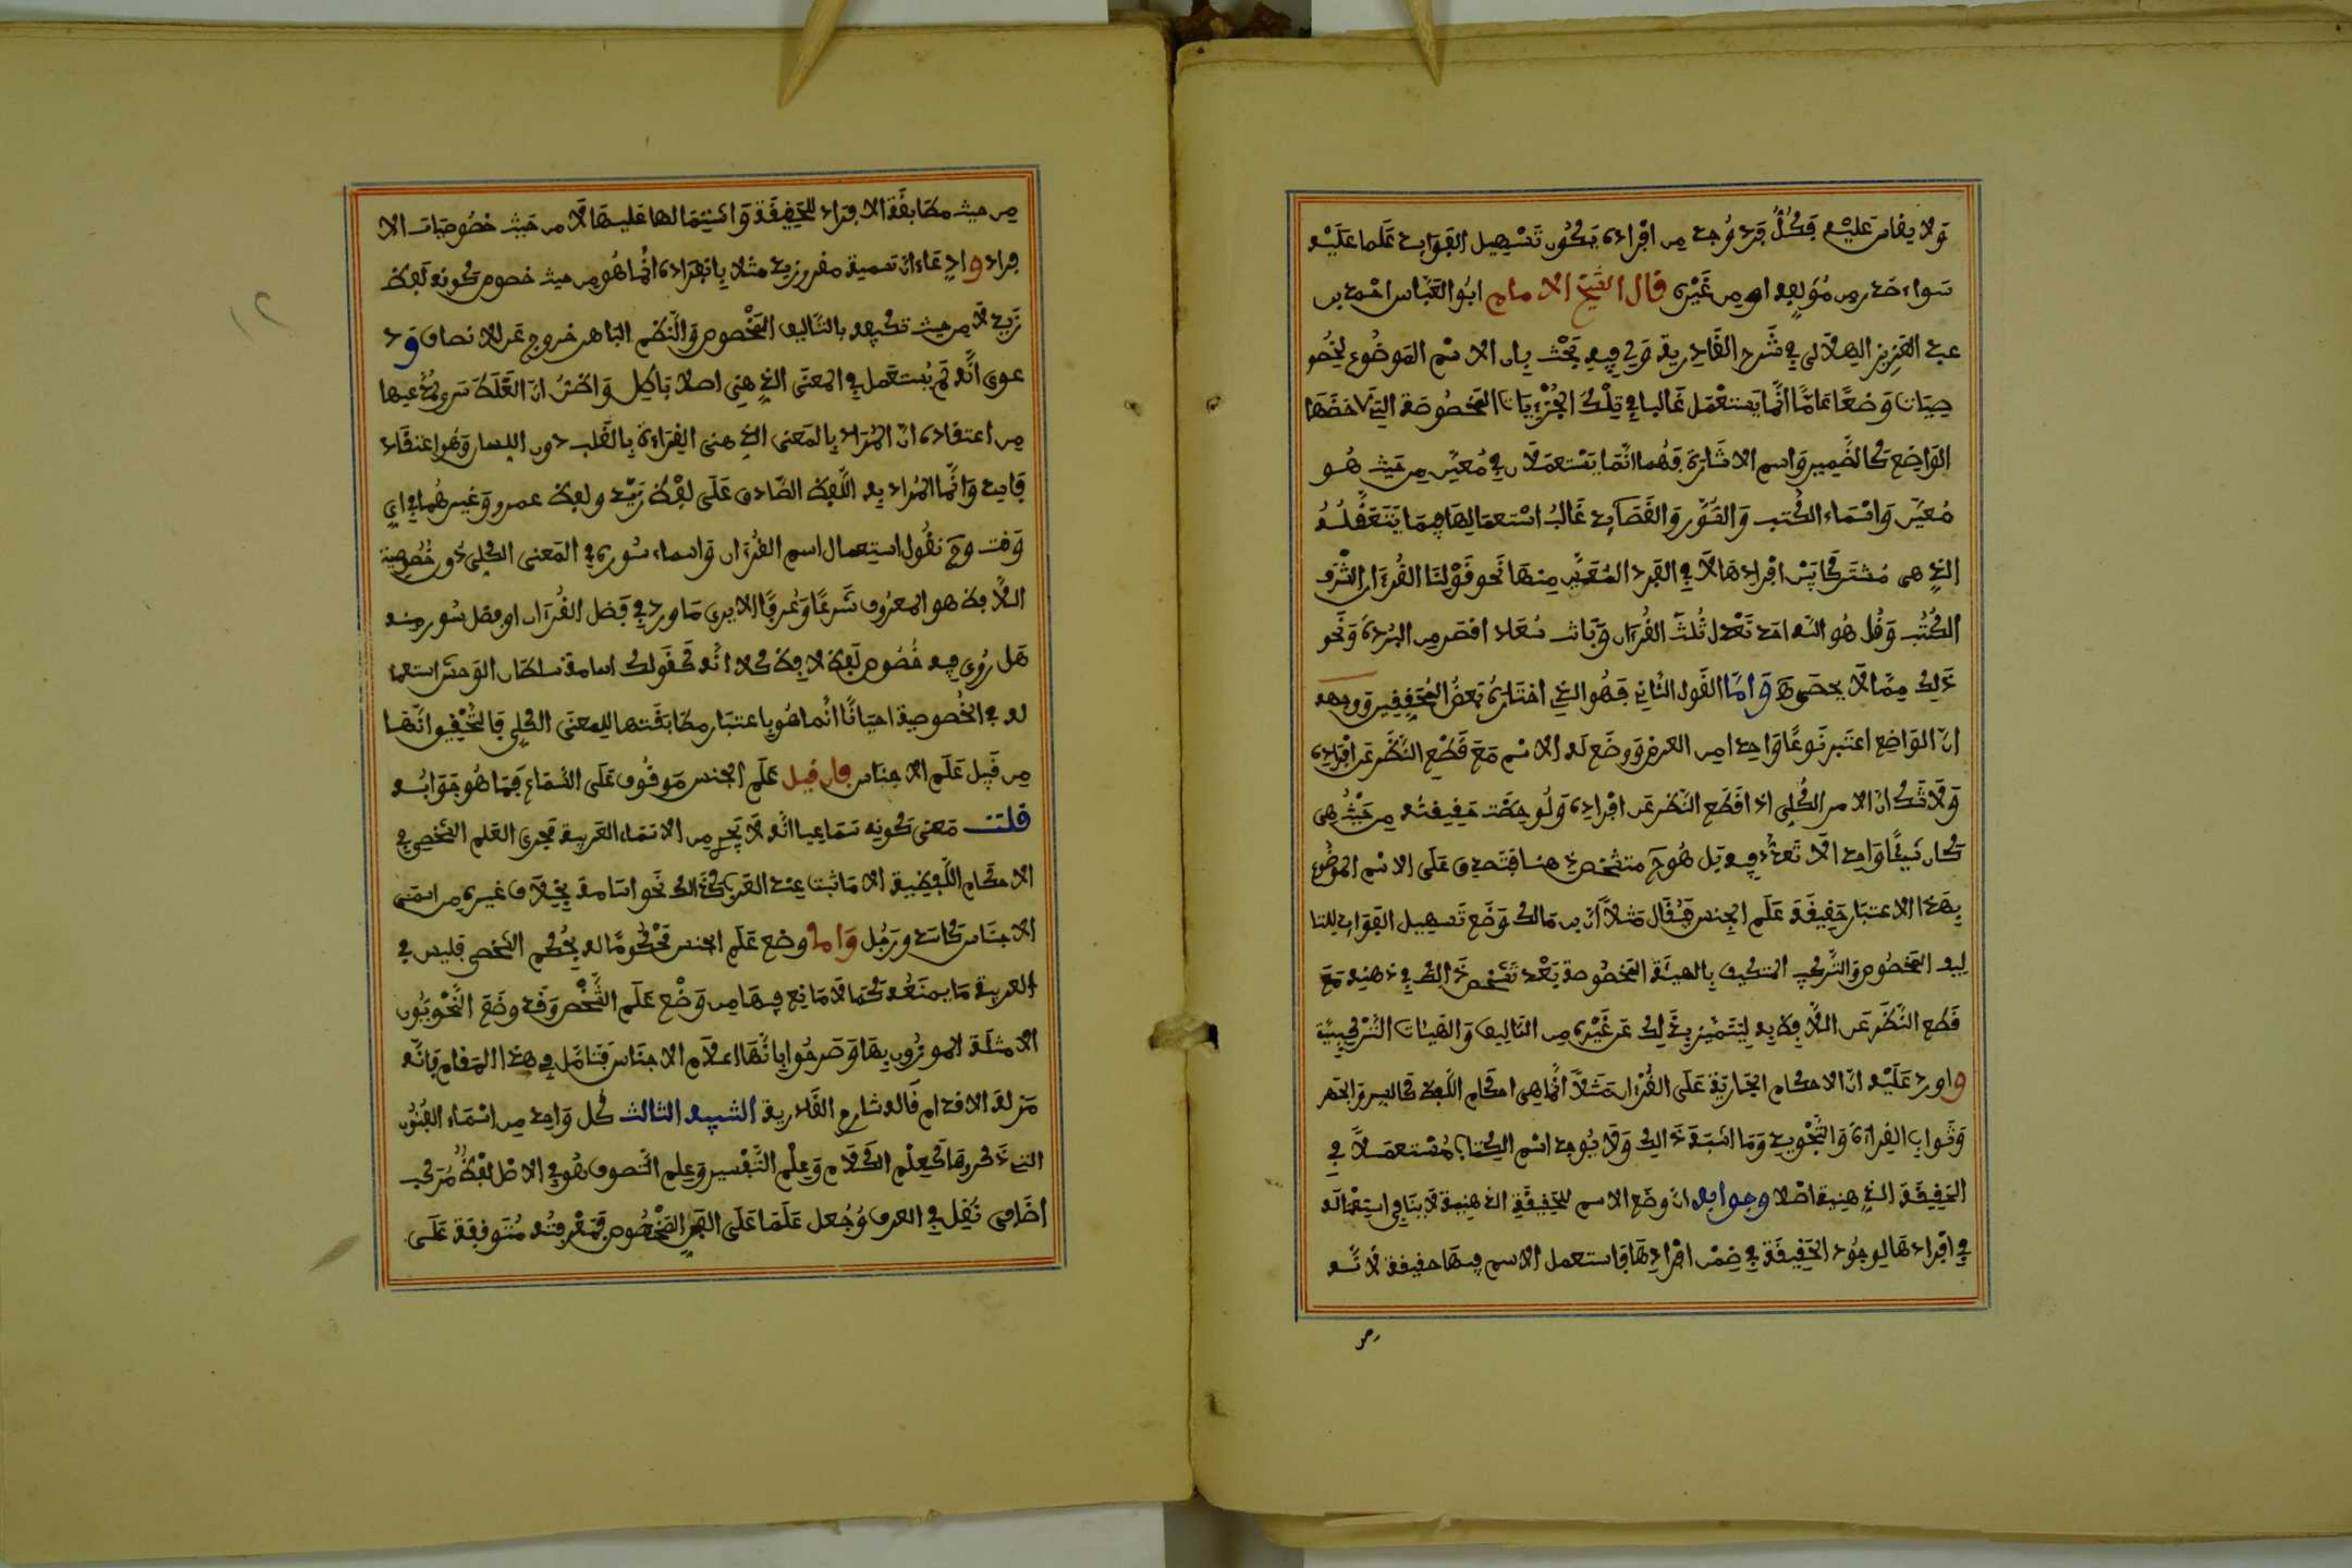 ولا يقاس عليه فكل فرد وجد من افراده يكون تسهيل الفوايد علما عليه
سواء صدر من مؤلفه او من غيره قال الشيخ الامام ابو العباس احمد بن
عبد العزيز الهلالي في شرح القادرية ولي فيه بحث بان الاسم الموضوع لخصو
صيات وضعا عاما انما يستعمل غالبا في تلك الجزئيات المخصوصة التي لاحضها
الواضع كالضمير واسم الاشارة فهما انما يستعملان في معين من حيث هو
معين واسماء الكتب والسور والقصايد غالب استعمالها فيما يتعقله
الذي هي مشترك بين افرادها لا في الفرد المعين منها نحو قولنا القرءان اشرف
الكتب وقل هو الله احد تعدل ثلث القرءان وبانت سعاد اقصر من البردة ونحو
ذلك مما لا يحصى واما القول الثاني فهو الذي اختاره بعض المحققين ووجهه
ان الواضع اعتبر نوعا واحدا من العرض ووضع له الاسم مع قطع النظر عن افراده
ولا شك ان الامر الكلي اذا قطع النظر عن افراده ولوحظت حقيقته من حيث هي
كان شيئا واحدا لا تعدد فيه بل هو متشخص ذهنا فتصدق على الاسم الموضوع
بهذا الاعتبار حقيقة علم الجنس فيقال مثلا ان بن مالك وضع تسهيل الفوايد للتا
ليف المخصوص والتركيب المتكيف بالهيئة المخصوصة بعد تشخص ذالك في ذهنه مع
قطع النظر عن اللافظ به ليتميز بذلك عن غيره من التاليف والهيات التركيبية
واورد عليه ان الاحكام الجارية على القرءان مثلا انما هي احكام اللفظ كالسر والجهر
وثواب القراءة والتجويد وما اشبه ذالك ولا يوجد اسم الكتاب مستعملا في
الحقيقة الذهنية اصلا وجوابه ان وضع الاسم للحقيقة الذهنية لا ينافي استعماله
في افرادها لوجود الحقيقة في ضمن افرادها فاستعمل الاسم فيها حقيقة لانه
من
من حيث مطابقة الافراد للحقيقة واشتمالها عليها لا من حيث خصوصيات الا
فراد وادعاء ان تسمية مفرو زيد مثلا بانفراده انما هو من حيث خصوص كونه لفظ
زيد لا من حيث تكيفه بالتاليف المخصوص والنظم الباهر خروج عن الانصاف ود
عوى انه لم يستعمل في المعنى الذهني اصلا باطل واظن ان الغلط سرى لمدعيها
من اعتقاده ان المراد بالمعنى الذهني القراءة بالقلب دون اللسان وهو اعتقاد
فاسد وانما المراد به اللفظ الصادق على لفظ زيد ولفظ عمرو وغيرهما في اي
وقت وح نقول استعمال اسم القرءان واسماء سوره في المعنى الكلي دون خصوصية
اللافظ هو المعروف شرعا وعرفا الا يرى ما ورد في فضل القرءان او فضل سور منه
هل روي فيه خصوص لفظ لافظ كلا انه كقولك اسامة سلطان الوحش استعما
له في الخصوصية احيانا انما هو باعتبار مطابقتها للمعنى الكلي فالتحقيق انها
من قبيل علم الاجناس فان قيل علم الجنس موقوف على السماع فما هو جوابه
قلت معنى كونه سماعيا انه لا يجرى من الاسماء العربية مجرى العلم الشخصي في
الاحكام اللفظية الا ما ثبت عند العرب كذالك نحو اسامة بخلاف غيره من اسمى
الاجناس كاسد ورجل واما وضع علم الجنس محكوما له بحكم الشخص فليس في
العربية ما يمنعه كما لا مانع فيها من وضع علم الشخص وقد وضع النحويون
الامثلة لموزون بها وصرحوا بانها اعلام الاجناس فتامل في هذا المقام فانه
مزلة الاقدام قاله شارح القادرية التنبيه الثالث كل واحد من اسماء الفنون
التي ذكروها كعلم الكلام وعلم التفسير وعلم التصوف هو في الاصل لفظ مركب
اضافي نقل في العرف وجعل علما على الفن المخصوص فمعرفته متوقفة على
١٢